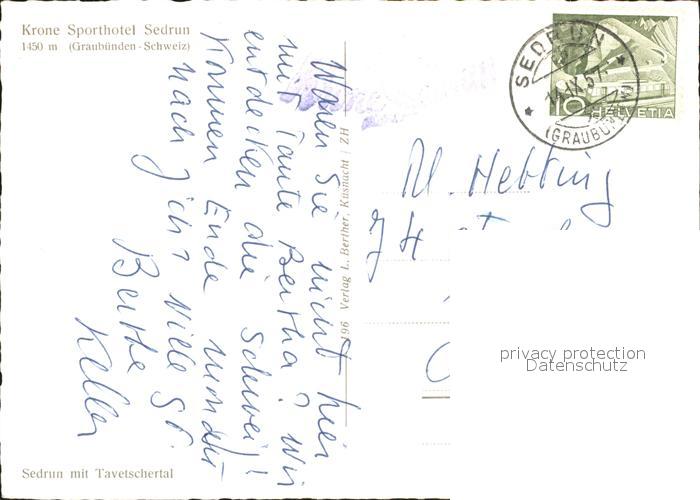 Krone Sporthotel Sedrun
1450 m (Graubünden-Schweiz)
Waren Sie nicht hier
mit Tante Bertha? Wir
entdecken die Schweiz!
Kommen Ende
nach
Berthe
Keller
Sedrun mit Tavetschertal
96 Verlag L. Berther, Küsnacht / ZH
SEDRUN
14.IX.5
(GRAUBÜNDEN)
10 HELVETIA
M. Hebting
privacy protection
Datenschutz